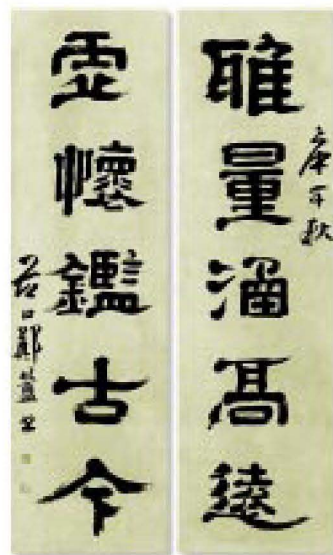 雅量涵高遠
庚午秋
虛懷鑑古今
谷口鄭簠書